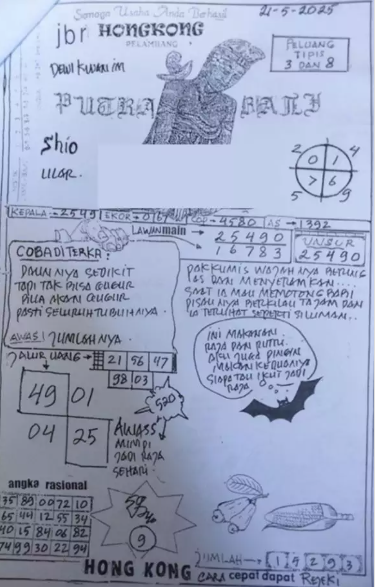 Semoga Usaha Anda Berhasil
21-5-2025
jbr HONGKONG
PELAMBANG
PELUANG
TIPIS
3 DAN 8
DEWI KWAN IM
PUTRA BALI
Shio
ULAR.
2 4
0 1
7 6
5 9
KEPALA → 2549 EKOR → 0167 COP → 4580 AS → 1392
LAWAN main
25490
16783
UNSUR
25490
COBA DITERKA :
DAUNNYA SEDIKIT
TAPI TAK BISA GUGUR
BILA AKAN GUGUR
PASTI SELURUH TUBUHNYA.
AWAS! JUMLAHNYA.
PAK KUMIS WAJAHNYA BENGIS
DAN MENYERAMKAN....
SAAT IA MAU MEMOTONG BABI
PISAUNYA BERKILAU TAJAM DAN
IA TERLIHAT SEPERTI SILUMAN..
JALUR UANG → 21 56 47
98 03
INI MAKANAN
RAJA DAN PUTRI.
AKU JUGA PINGIN
MAKAN KEDUANYA
SIAPA TAU IKUT JADI
RAJA
49 01
04 25
520
AWASS
MIMPI
JADI RAJA
SEHARI
angka rasional
75 89 00 72 10
65 44 12 55 34
40 15 84 06 82
74 99 30 22 94
9
JUMLAH → 1 5 2 9 3
HONG KONG CARA cepat dapat REJEKI